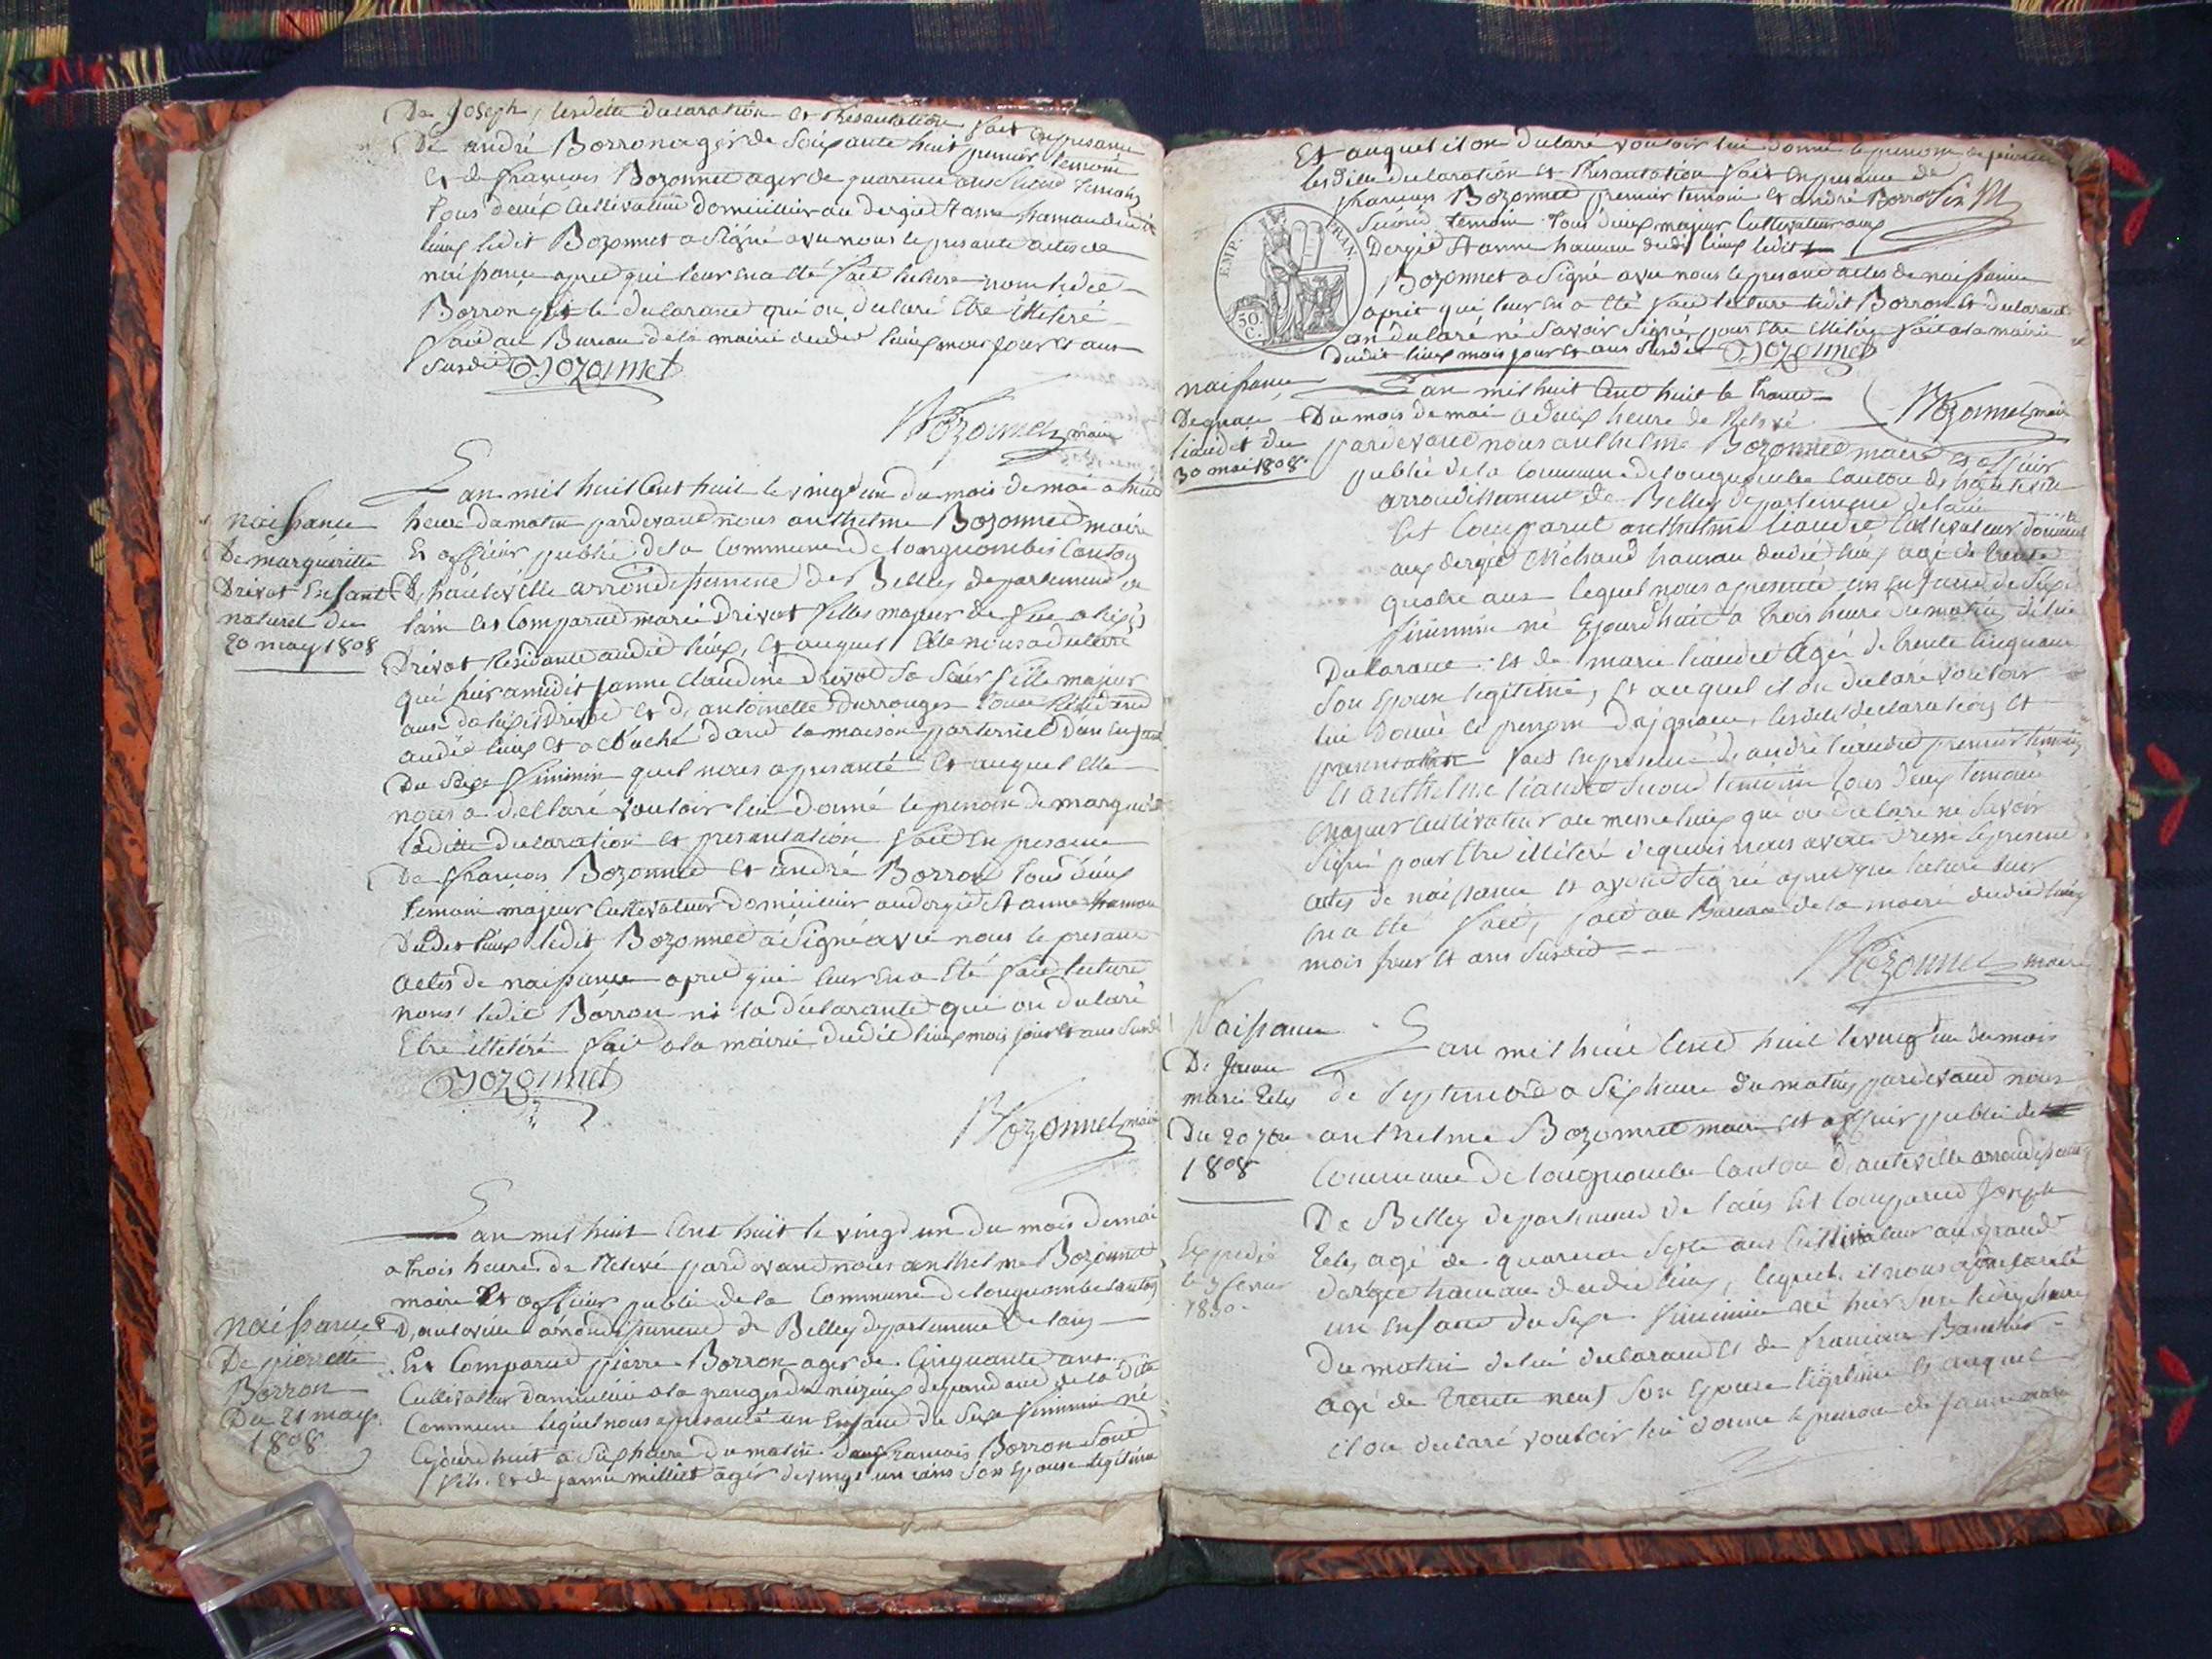 De Joseph, lesdite declaration et Presantation fait en presance
De andré Borron agér de Soixante huit premier temoin
et de francois Bozonnet ager de quarente ans Second temoin
tous deux Cultivateur domicillier au dergit St anne hamau dudit
lieux ledit Bozonnet a Signé avec nous le presante actes de
naissance apres qui leur en a eté fait lecture non ledit
Borron ni le declarant qui on declaré Etre illiteré
fait au Bureau de la mairie dudit lieux mois jour et ans
Susdit Bozonnet
Bozonnet maire
naissance
De margueritte
Drivot Enfant
naturel du
20 may 1808
L'an mil huit Cent huit le vingt un du mois de mai a
heure du matin pardevant nous anthelme Bozonnet maire
Et officier publie de la Commune de longuombe Canton
D'hauteville arrondissement de Belley departement de
lain Est Comparue marie Drivot filles majeur de feu
Drivot Residante audit lieux, et auquel Elle nous a declaré
qui hier a midit janne Claudine Drivot Sa Seur fille majeur
aus et D'antoinette Durrouger
audit lieux Et a accouché dant la maison parterniel d'un Enfant
Du Sexe feminin quel nous a presanté et auquel elle
nous a declaré vouloir lui donné le penom de marguerite
ladite declaration et presantation fait en presance
De francois Bozonnet et andré Borron tous deux
temoin majeur Cultivateur domicilier au dergit St anne hamau
Dudit lieux ledit Bozonnet a Signé avec nous le presant
actes de naissance apres qui leur en a Eté fait lecture
nons ledit Borron ni la déclarante qui on declaré
Etre illiteré fait a la mairie dudit lieux mois jour et ans Susdit
Bozonnet
Bozonnet maire
naissance
De pierrette
Borron
Du 21 may
1808
L'an mil huit Cent huit le vingt un du mois de mai
a trois heure de Relevé pardevant nous anthelme Bozonnet
maire Et officier publie de la Commune de longuombe Canton
D'auteville arrondissement de Belley departement de lain
Est Comparue pierre Borron ager de Cinquante ans
Cultivateur domicilié a la granges du dependant de la dite
Commune lequel nous a presanté un Enfant du Sexe feminin né
Ejourdhuit a Six heure du matin de francois Borron Sont
fils Et de janne milliet ager de vingt un ans Son Epouse legitime
Et auquel il on declaré vouloir lui donné le penom de pierrette
lesdite declaration et Presantation fait en presance de
francois Bozonnet premier temoin et andré Borron
Second temoin tous deux majeur Cultivateur aux
Dergit St anne hamau dudit lieux ledit
Bozonnet a Signé avec nous le presant actes de naissance
apres qui leur en a eté fait lecture ledit Borron et declarant
on declaré ne Savoir Signé pour Etre illiteré fait a la mairie
dudit lieux mois jour et ans Susdit Bozonnet
EMP. FRAN.
50 C.
Bozonnet maire
naissance
De
liaudet du
30 mai 1808
L'an mil huit Cent huit le trante
Du mois de mai a deux heure de Relevé
pardevant nous anthelme Bozonnet maire et officier
publie de la Commune de longuombe Canton de hauteville
arrondissement de Belley departement de lain
Est Comparut anthelme liaudet Cultivateur domicilié
aux dergit Michaud hamau dudit lieux agé de trente
quatre ans lequel nous a presenté un enfant de Sexe
feminin né Ejourdhuit a trois heure du matin de lui
Declarant et de marie liaudet agé de trente Cinq ans
Son Epouse legitime, Et auquel il on declaré vouloir
lui donné le prenom lesdite declaration et
presentation fait en presence de andré liaudet premier temoin
Et anthelme liaudet Second temoin tous deux temoin
majeur Cultivateur au meme lieux qui on declaré ne Savoir
Signé pour Etre illiteré dequois nous avons dressé le present
actes de naissance et avons Signé apres que lecture leur
en a Eté fait, fait au Bureau de la mairie dudit lieux
mois jour et ans Susdit
Bozonnet maire
Naissance
De Janne
marie
Du 20 7bre
1808
Expedié
le 3 fevrier
1830
L'an mil huit Cent huit le vingt un du mois
de Septembre a Six heure du matin pardevant nous
anthelme Bozonnet maire et officier publie de la
Commune de longuombe Canton d'auteville arrondissement
De Belley departement de lain Est Comparut Joseph
agé de quarente Septe ans Cultivateur au grand
dergit hamau dudit lieux, lequel il nous a presanté
un Enfant du Sexe feminin né hier Sur les dix heure
Du matin de lui declarant et de francoise
agé de trente neuf Son Epouse legitime Et auquel
il on declaré vouloir lui donné le penom de janne marie